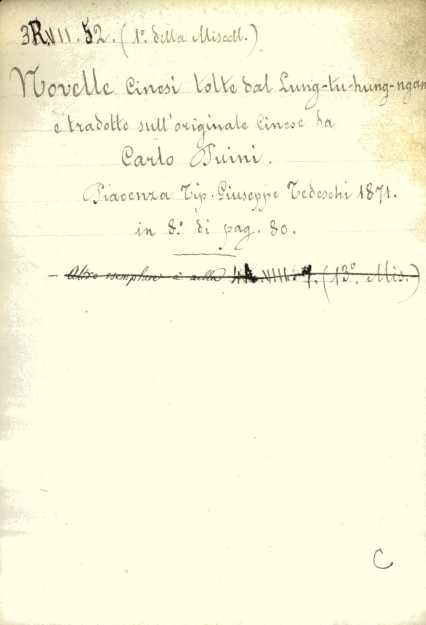 3R.VII.52. (1º. della Miscell.)
Novelle Cinesi tolte dal Lung-tu-kung-ngan
e tradotte sull'originale Cinese da
Carlo Puini.
Piacenza Tip. Giuseppe Tedeschi 1871.
in 8.º di pag. 80.
- Altro esemplare è nella 4R.VIII.7. (13º. Mis.)
C